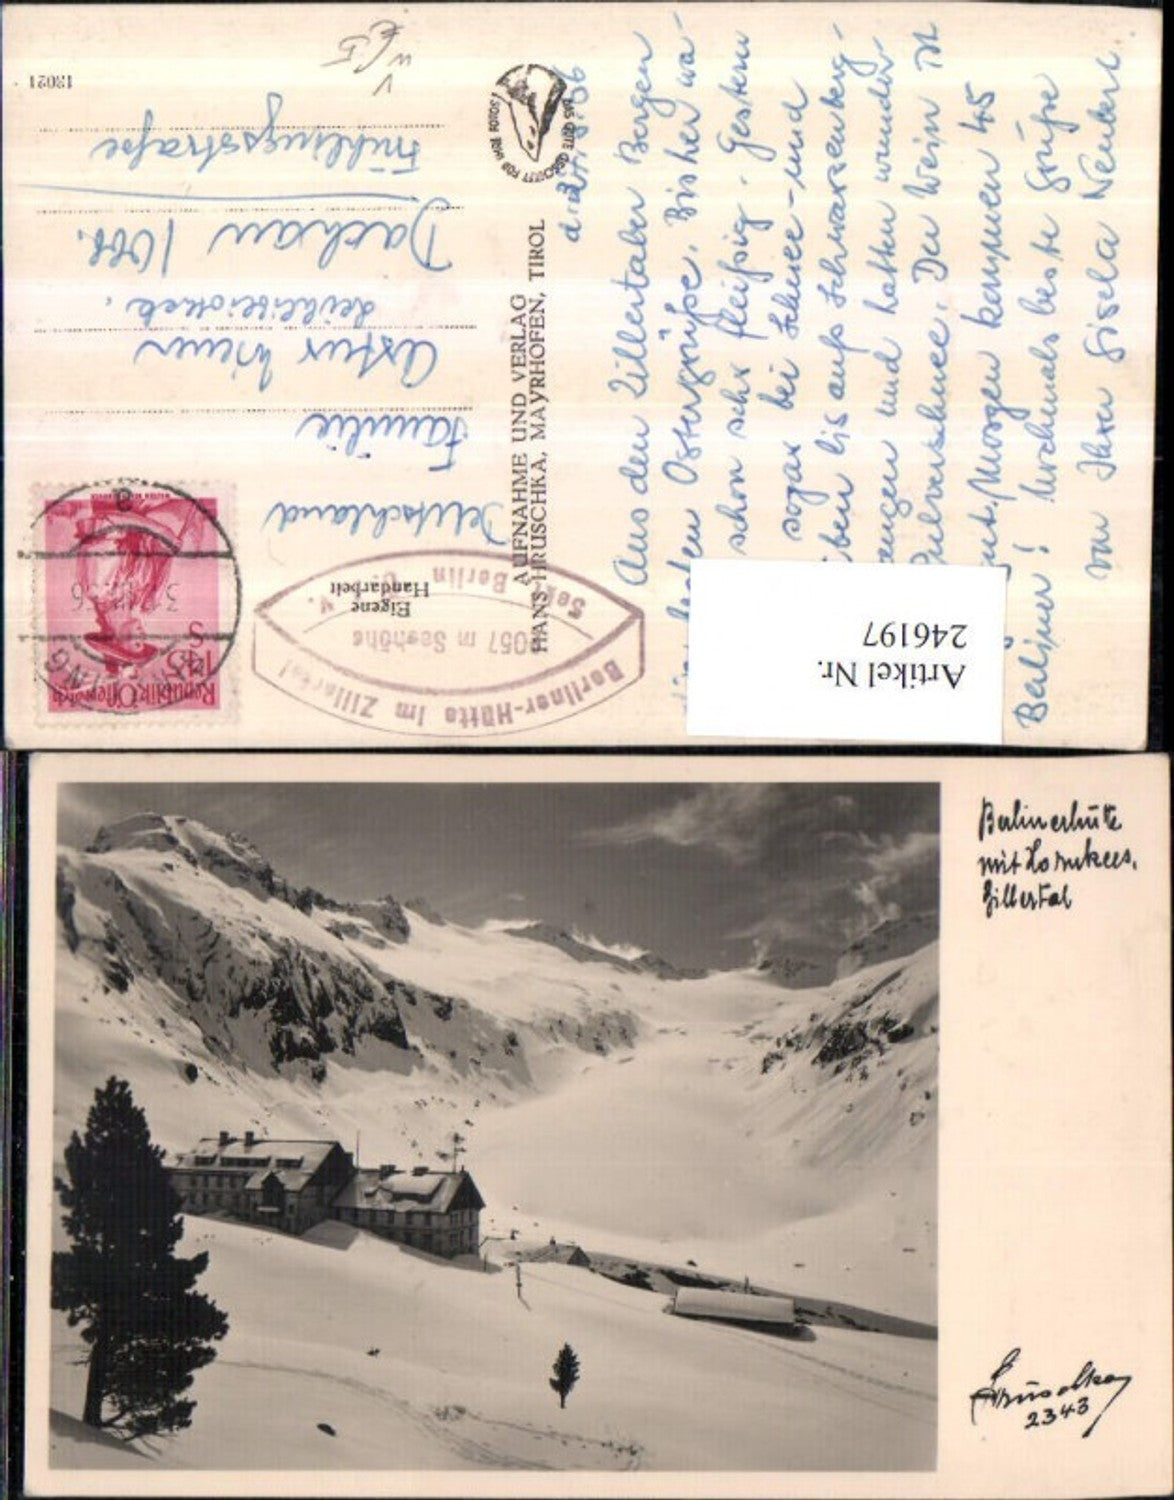 13021
V
Frühlingsstraße
Dachau / Obb.
Leihbibliothek.
Familie
Deutschland
Republik Österreich
31. III. 56
Eigene
Handarbeit
Berliner-Hütte im Zillertal
2057 m Seehöhe
Sekt. Berlin
FÜR IHRE FOTOS DAS GUTE GESCHÄFT
AUFNAHME UND VERLAG
HANS HRUSCHKA, MAYRHOFEN, TIROL
Aus den Zillertaler Bergen
Ostergrüße. Bisher wa-
schon sehr fleißig. Gestern
sogar bei Schnee- und
bis aufs Schwarzenberg-
und hatten wunder-
Pulverschnee. Der Wein ist
gut. Morgen kommen 45
Berliner! Nochmals beste Grüße
von Ihrer Gisela Neubert
Artikel Nr.
246197
Berlinerhütte
mit Hornkees,
Zillertal
Hruschka
2343